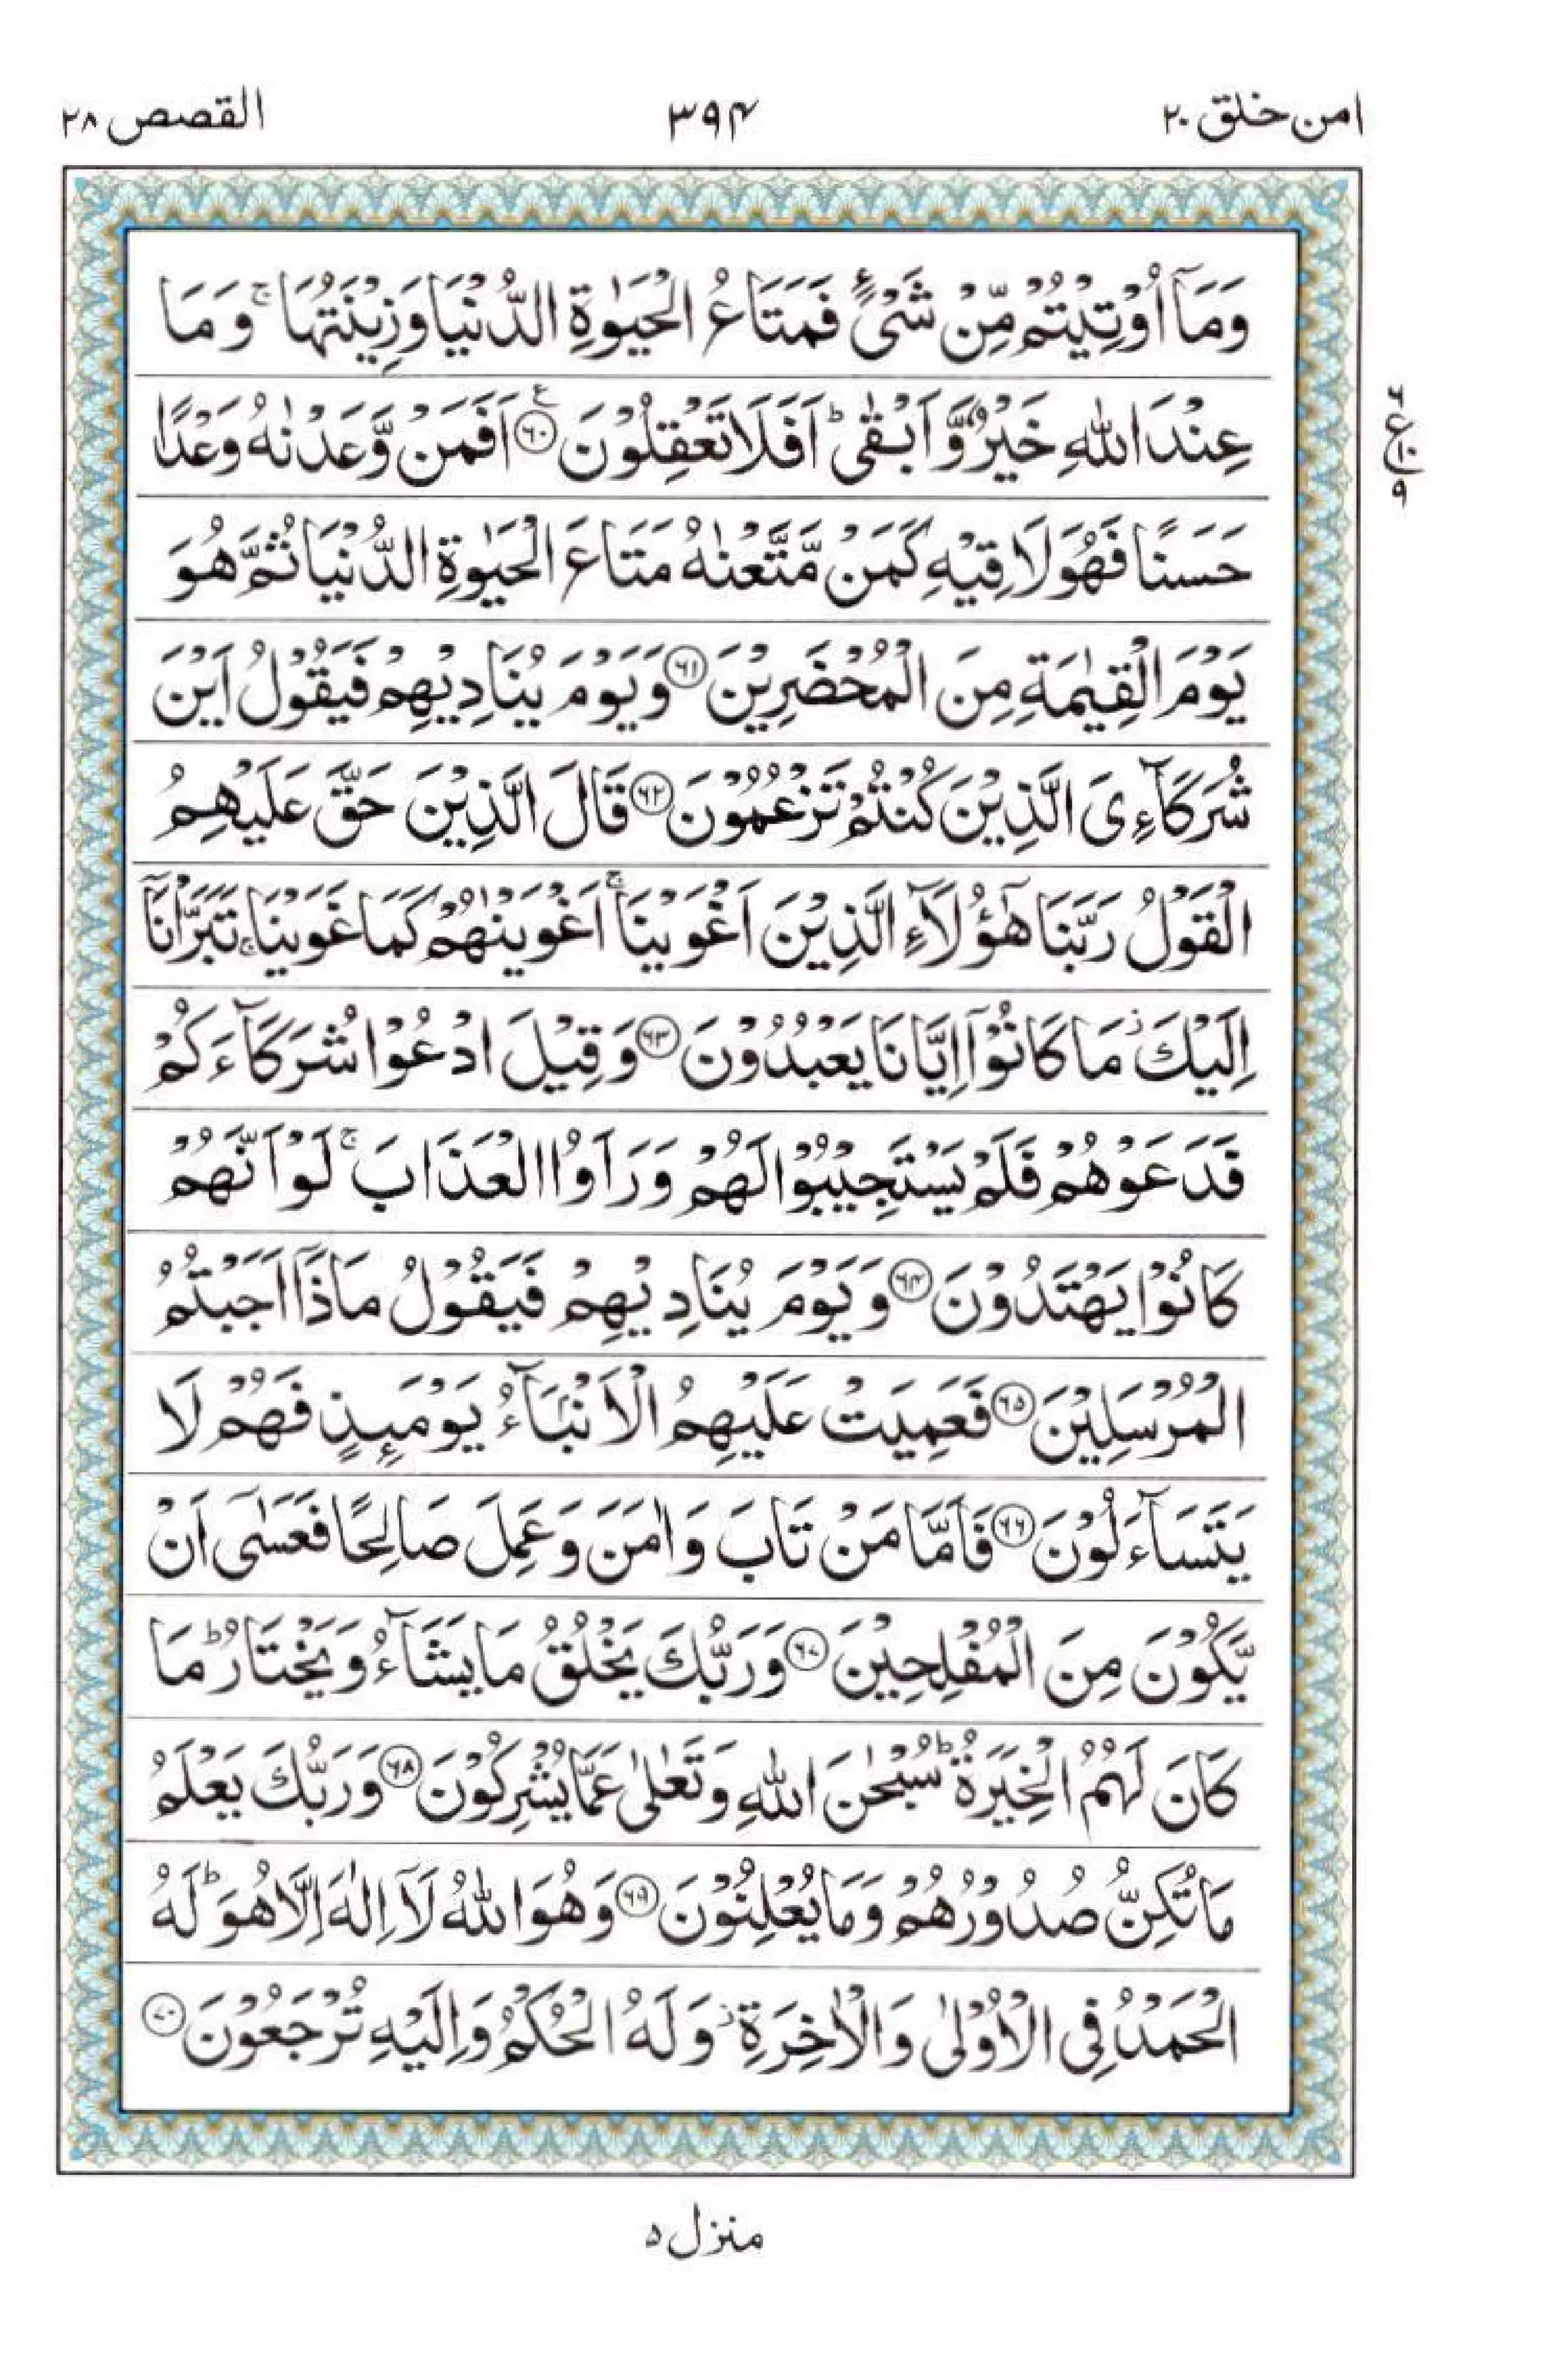 امن خلق ۲۰
۳۹۴
القصص ۲۸
وَمَاۤ اُوْتِيْتُمْ مِّنْ شَيْءٍ فَمَتَاعُ الْحَيٰوةِ الدُّنْيَا وَزِيْنَتُهَا ۚ وَمَا
عِنْدَ اللّٰهِ خَيْرٌ وَّاَبْقٰى ؕ اَفَلَا تَعْقِلُوْنَ ۶۰ اَفَمَنْ وَّعَدْنٰهُ وَعْدًا
۶
ع
۱۰
۹
حَسَنًا فَهُوَ لَاقِيْهِ كَمَنْ مَّتَّعْنٰهُ مَتَاعَ الْحَيٰوةِ الدُّنْيَا ثُمَّ هُوَ
يَوْمَ الْقِيٰمَةِ مِنَ الْمُحْضَرِيْنَ ۶۱ وَيَوْمَ يُنَادِيْهِمْ فَيَقُوْلُ اَيْنَ
شُرَكَآءِىَ الَّذِيْنَ كُنْتُمْ تَزْعُمُوْنَ ۶۲ قَالَ الَّذِيْنَ حَقَّ عَلَيْهِمُ
الْقَوْلُ رَبَّنَا هٰۤؤُلَآءِ الَّذِيْنَ اَغْوَيْنَا ۚ اَغْوَيْنٰهُمْ كَمَا غَوَيْنَا ۚ تَبَرَّاْنَاۤ
اِلَيْكَ ؗ مَا كَانُوْۤا اِيَّانَا يَعْبُدُوْنَ ۶۳ وَقِيْلَ ادْعُوْا شُرَكَآءَكُمْ
فَدَعَوْهُمْ فَلَمْ يَسْتَجِيْبُوْا لَهُمْ وَرَاَوُا الْعَذَابَ ۚ لَوْ اَنَّهُمْ
كَانُوْا يَهْتَدُوْنَ ۶۴ وَيَوْمَ يُنَادِيْهِمْ فَيَقُوْلُ مَاذَاۤ اَجَبْتُمُ
الْمُرْسَلِيْنَ ۶۵ فَعَمِيَتْ عَلَيْهِمُ الْاَنْۢبَآءُ يَوْمَئِذٍ فَهُمْ لَا
يَتَسَآءَلُوْنَ ۶۶ فَاَمَّا مَنْ تَابَ وَاٰمَنَ وَعَمِلَ صَالِحًا فَعَسٰۤى اَنْ
يَّكُوْنَ مِنَ الْمُفْلِحِيْنَ ۶۷ وَرَبُّكَ يَخْلُقُ مَا يَشَآءُ وَيَخْتَارُ ؕ مَا
كَانَ لَهُمُ الْخِيَرَةُ ؕ سُبْحٰنَ اللّٰهِ وَتَعٰلٰى عَمَّا يُشْرِكُوْنَ ۶۸ وَرَبُّكَ يَعْلَمُ
مَا تُكِنُّ صُدُوْرُهُمْ وَمَا يُعْلِنُوْنَ ۶۹ وَهُوَ اللّٰهُ لَاۤ اِلٰهَ اِلَّا هُوَ ؕ لَهُ
الْحَمْدُ فِى الْاُوْلٰى وَالْاٰخِرَةِ ؗ وَلَهُ الْحُكْمُ وَاِلَيْهِ تُرْجَعُوْنَ ۷۰
منزل ۵